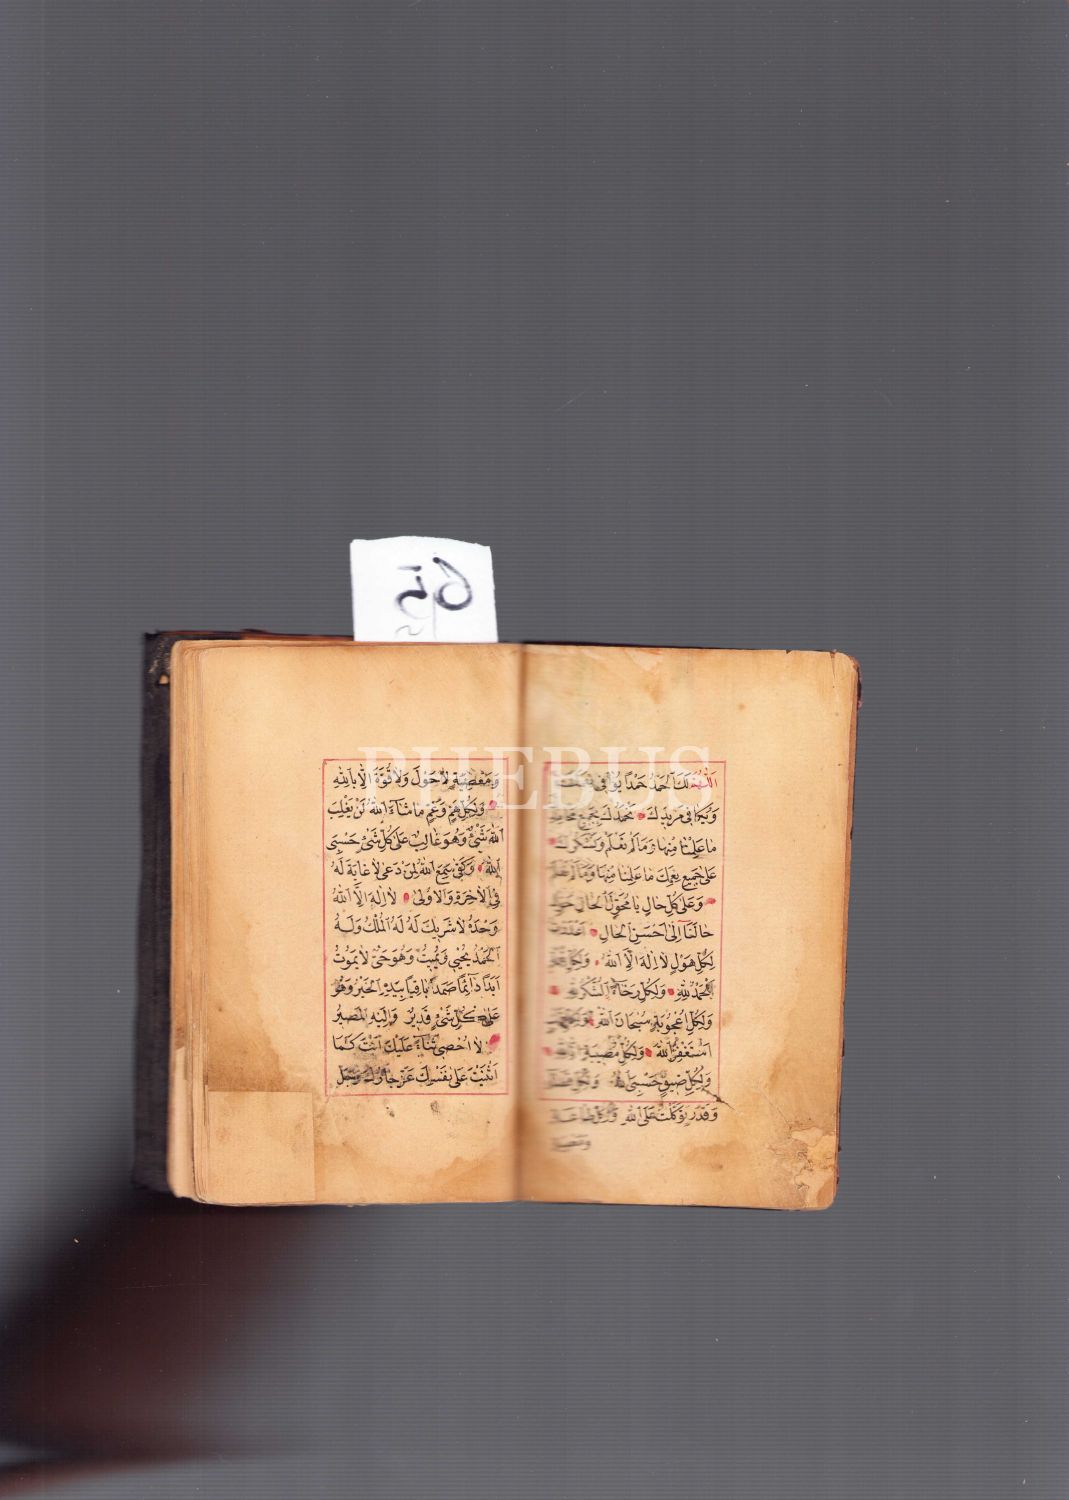 اللهم لك الحمد حمدا يوافى
ويكافى مزيدك نحمدك بجميع
ما علمنا منها وما لم نعلم ونشكرك
على جميع نعمك ما علمنا منها وما لم
وعلى كل حال يا محول الحال حول
حالنا الى احسن الحال
لكل هول لا اله الا الله ولكل
الحمد لله ولكل رخاء الشكر لله
ولكل اعجوبة سبحان الله
استغفر الله ولكل مصيبة
ولكل ضيق حسبى الله
وقدر توكلت على الله ولكل طاعة
ومعصية
وَمَعْصِيَةٍ لَاحَوْلَ وَلَا قُوَّةَ اِلَّا بِاللهِ
وَلِكُلِّ هَمٍّ وَغَمٍّ مَا شَاءَ اللهُ لَنْ يَغْلِبَ
اللهَ شَيْءٌ وَهُوَ غَالِبٌ عَلَى كُلِّ شَيْءٍ حَسْبِىَ
اللهُ وَكَفَى سَمِعَ اللهُ لِمَنْ دَعَى لَا غَايَةَ لَهُ
فِى الْاٰخِرَةِ وَالْاُولٰى لَا اِلٰهَ اِلَّا اللهُ
وَحْدَهُ لَا شَرِيكَ لَهُ لَهُ الْمُلْكُ وَلَهُ
الْحَمْدُ يُحْيِى وَيُمِيتُ وَهُوَ حَىٌّ لَا يَمُوتُ
اَبَدًا دَائِمًا صَمَدًا بَاقِيًا بِيَدِهِ الْخَيْرُ وَهُوَ
عَلَى كُلِّ شَيْءٍ قَدِيرٌ وَاِلَيْهِ الْمَصِيرُ
لَا اُحْصِى ثَنَاءً عَلَيْكَ اَنْتَ كَمَا
اَثْنَيْتَ عَلَى نَفْسِكَ عَزَّ جَارُكَ وَجَلَّ
PHEBUS